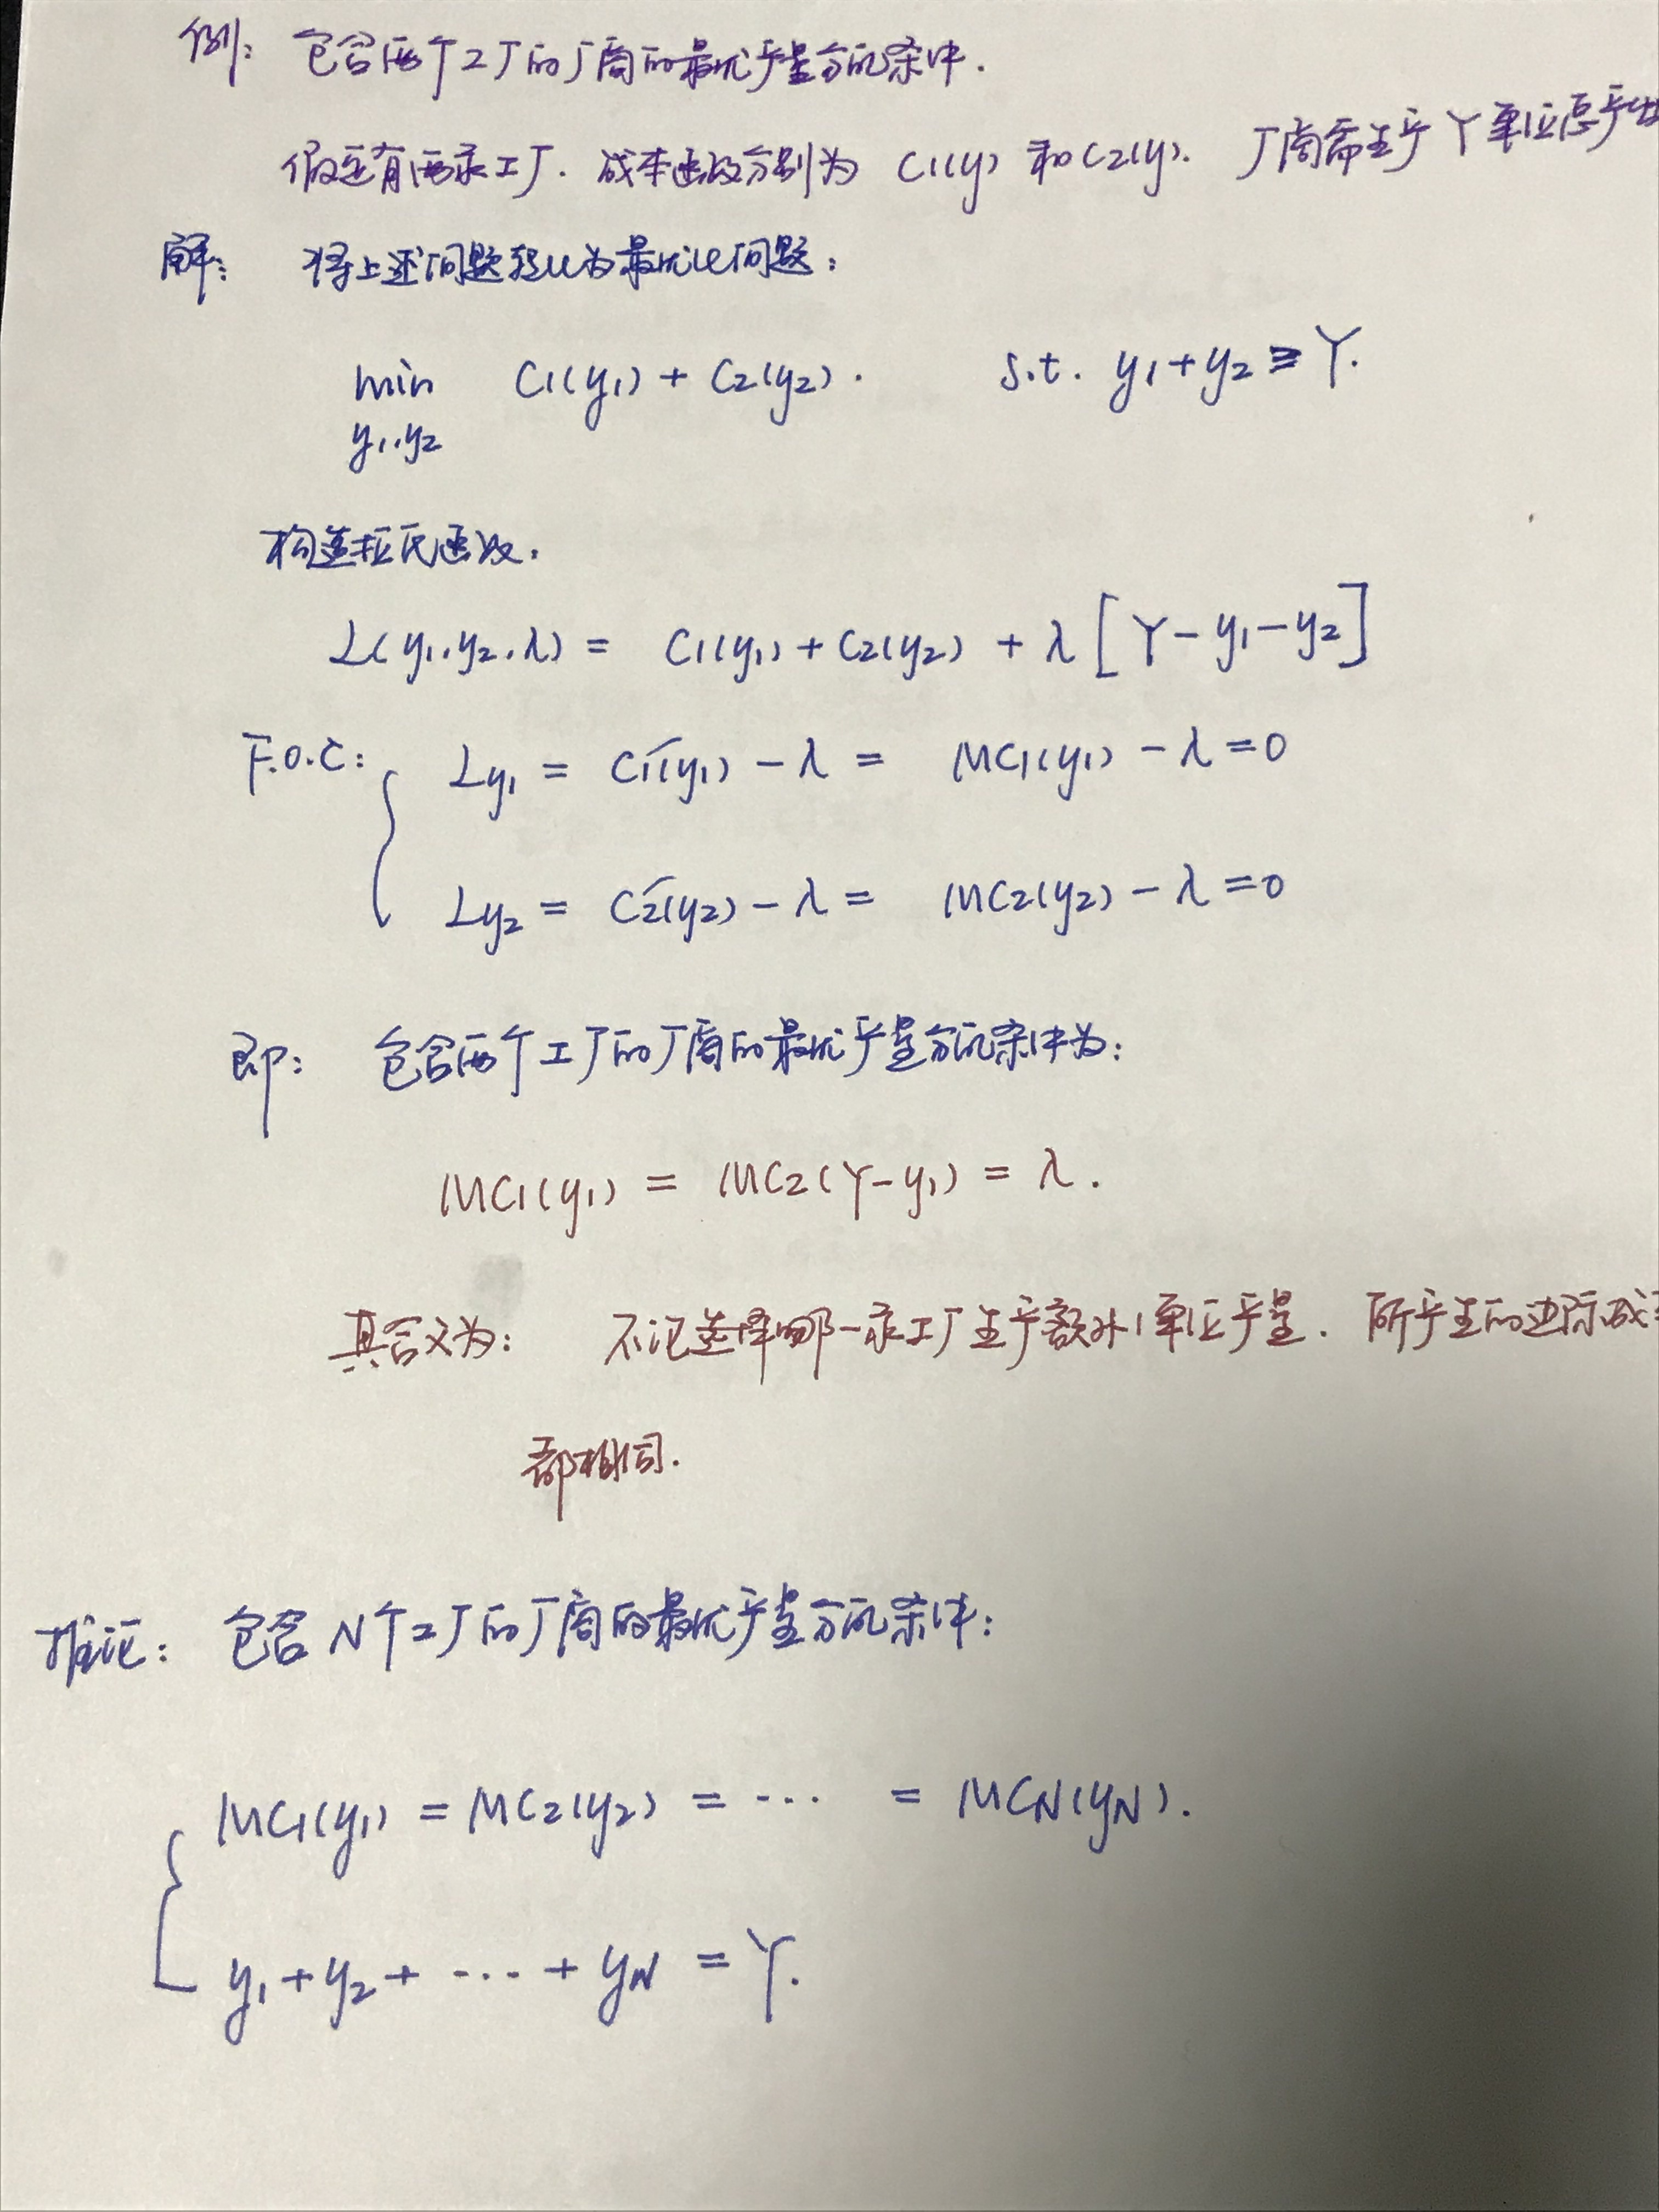 例: 包含两个工厂的厂商的最优产量分配条件.
假定有两家工厂. 成本函数分别为 C1(y) 和 C2(y). 厂商需生产 Y 单位总产出
解: 将上述问题转化为最优化问题:
min C1(y1) + C2(y2). s.t. y1+y2 ≡ Y.
y1.y2
构造拉氏函数.
L(y1.y2.λ) = C1(y1) + C2(y2) + λ[Y-y1-y2]
F.O.C: Ly1 = C1'(y1) - λ = MC1(y1) - λ = 0
Ly2 = C2'(y2) - λ = MC2(y2) - λ = 0
即: 包含两个工厂的厂商的最优产量分配条件为:
MC1(y1) = MC2(Y-y1) = λ.
其含义为: 不论选择哪一家工厂生产额外1单位产量. 所产生的边际成
都相同.
推论: 包含N个工厂的厂商的最优产量分配条件:
MC1(y1) = MC2(y2) = ··· = MCN(yN).
y1+y2+ ··· + yN = Y.